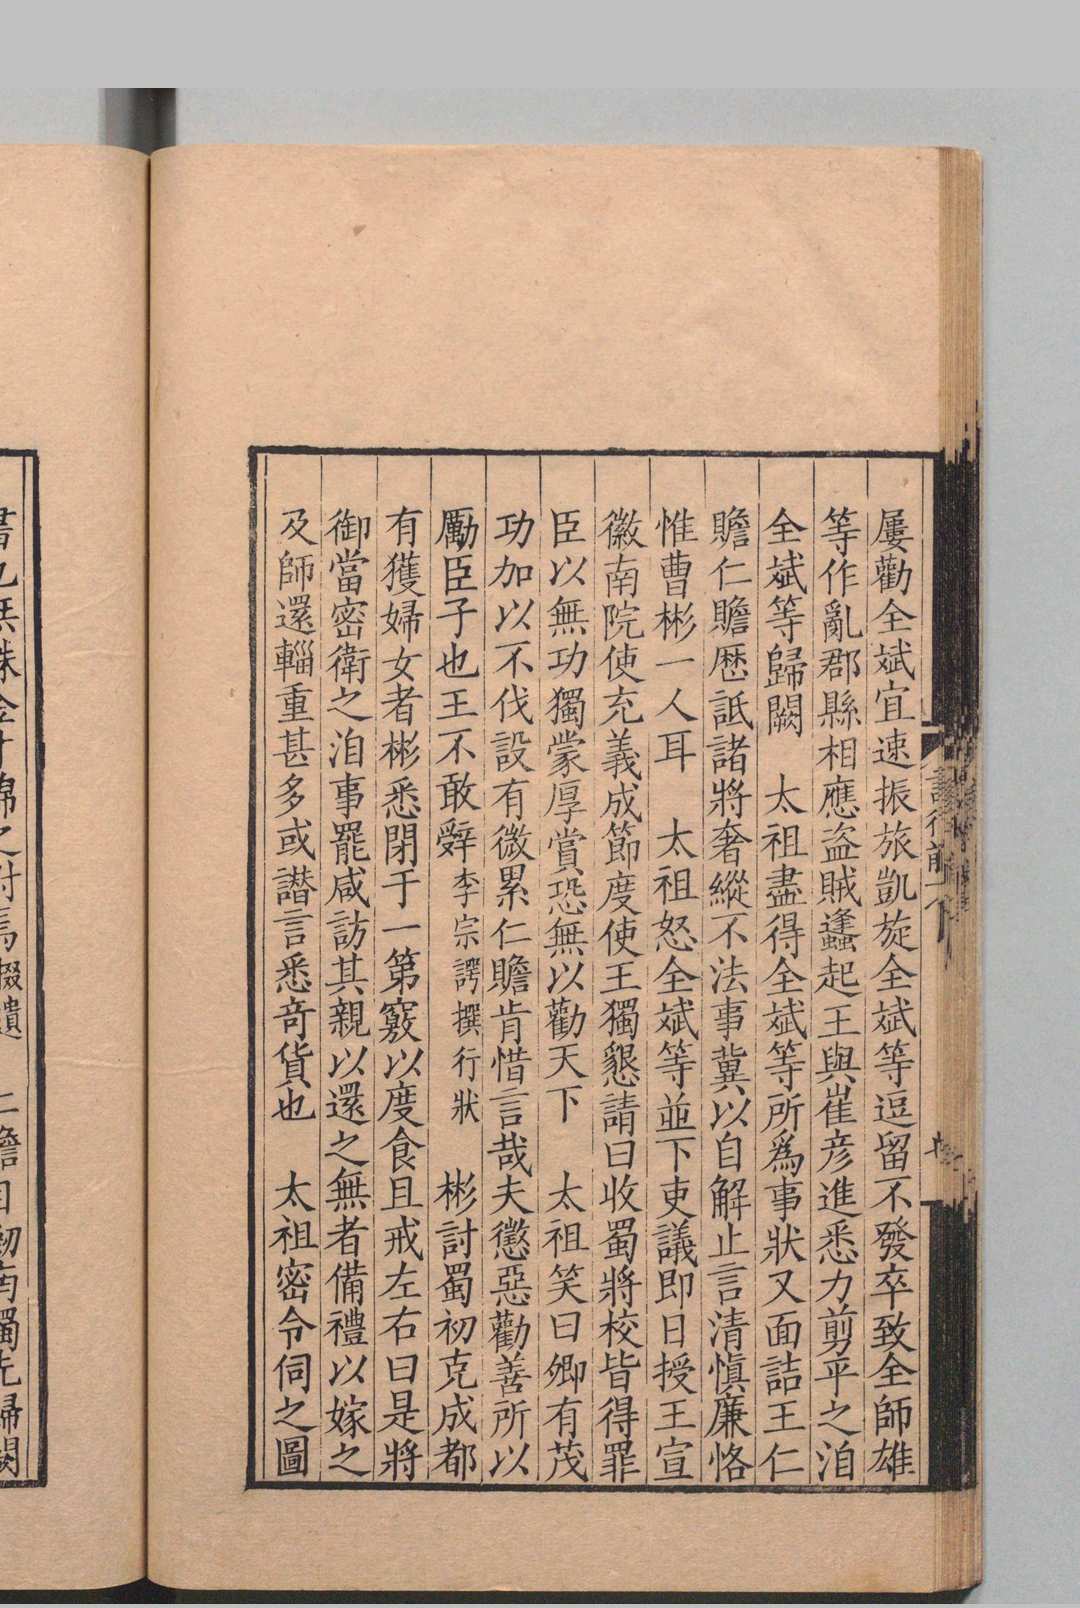 屢勸全斌宜速振旅凱旋全斌等逗留不發卒致全師雄
等作亂郡縣相應盜賊蠭起王與崔彦進悉力剪平之洎
全斌等歸闕　太祖盡得全斌等所爲事狀又面詰王仁
贍仁贍歷詆諸將奢縱不法事冀以自解止言清愼廉恪
惟曹彬一人耳　太祖怒全斌等並下吏議即日授王宣
徽南院使充義成節度使王獨懇請曰收蜀將校皆得罪
臣以無功獨蒙厚賞恐無以勸天下　太祖笑曰卿有茂
功加以不伐設有微累仁贍肯惜言哉夫懲惡勸善所以
勵臣子也王不敢辭李宗諤撰行狀　彬討蜀初克成都
有獲婦女者彬悉閉于一第竅以度食且戒左右曰是將
御當密衛之洎事罷咸訪其親以還之無者備禮以嫁之
及師還輜重甚多或譖言悉奇貨也　太祖密令伺之圖